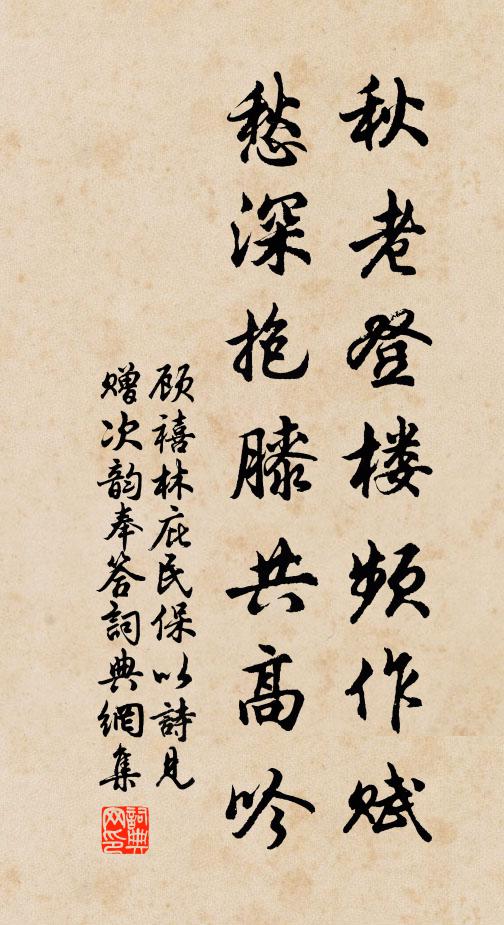 秋老登楼頻作赋
愁深抱膝共高吟
顾禧林庇民保以詩見
赠次韵奉答詞典網集
詞典网印